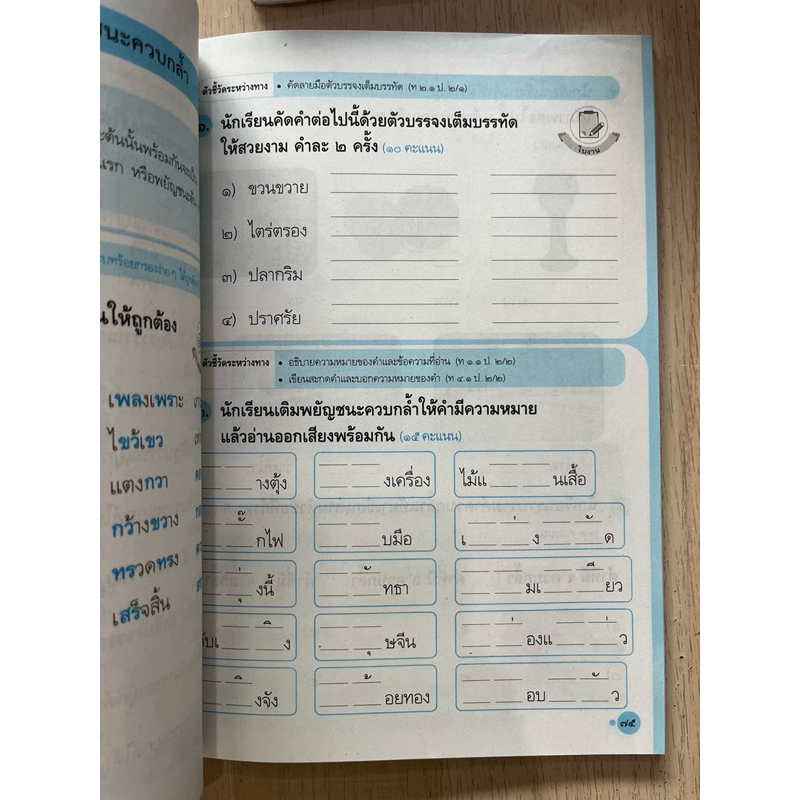 นะควบกล้ำ
ะต้นนั้นพร้อมกันจะเป็น
แรก หรือพยัญชนะต้น
นให้ถูกต้อง
เพลงเพราะ
ไขว้เขว
แตงกวา
กว้างขวาง
ทรวดทรง
เสร็จสิ้น
ตัวชี้วัดระหว่างทาง • คัดลายมือตัวบรรจงเต็มบรรทัด (ท ๒.๑ ป. ๒/๑)
๒. นักเรียนคัดคำต่อไปนี้ด้วยตัวบรรจงเต็มบรรทัด
ให้สวยงาม คำละ ๒ ครั้ง (๑๐ คะแนน)
ใบงาน
๑) ขวนขวาย
๒) ไตร่ตรอง
๓) ปลากริม
๔) ปราศรัย
ตัวชี้วัดระหว่างทาง • อธิบายความหมายของคำและข้อความที่อ่าน (ท ๑.๑ ป. ๒/๒)
• เขียนสะกดคำและบอกความหมายของคำ (ท ๔.๑ ป. ๒/๒)
นักเรียนเติมพยัญชนะควบกล้ำให้คำมีความหมาย
แล้วอ่านออกเสียงพร้อมกัน (๑๕ คะแนน)
__ __ างตุ้ง __ __ งเครื่อง ไม้แ __ __ นเสื้อ
__ __๊ กไฟ __ __ บมือ เ __ __่ ง __ __ั ด
__ __ุ่ งนี้ __ __ั ทธา __ __ มเ __ __ี ยว
ับเ __ __ิ ง __ __ุ ษจีน __ __่ องแ __ __่ ว
__ __ิ งจัง __ __้ อยทอง __ __ อบ __ __ั ว
๗๕